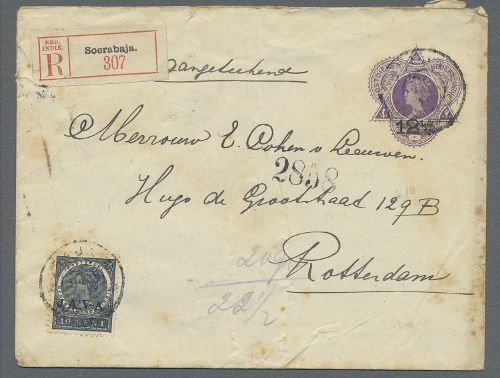 NED. INDIË.
R
Soerabaja.
307
Aangeteekend
12½
Mevrouw E. Cohen v Leeuwen.
2858
Hugo de Grootstraad 129B
Rotterdam
209
22½
JAVA.
10 CENT